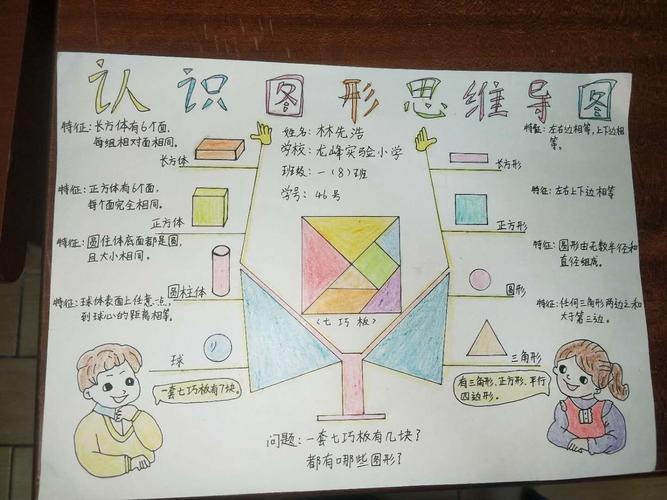 认识图形思维导图
姓名：林先浩
学校：龙峰实验小学
班级：一（8）班
学号：46号
特征：长方体有6个面，
每组相对面相同。
长方体
特征：正方体有6个面，
每个面完全相同。
正方体
特征：圆住体底面都是圆，
且大小相同。
圆柱体
特征：球体表面上任意一点，
到球心的距离相等。
球
特征：左右边相等，上下边相
等。
长方形
特征：左右上下边相等
正方形
特征：圆形由无数半径和
直径组成。
圆形
特征：任何三角形两边之和
大于第三边。
三角形
（七巧板）
一套七巧板有7块。
有三角形、正方形、平行
四边形。
问题：一套七巧板有几块？
都有哪些图形？